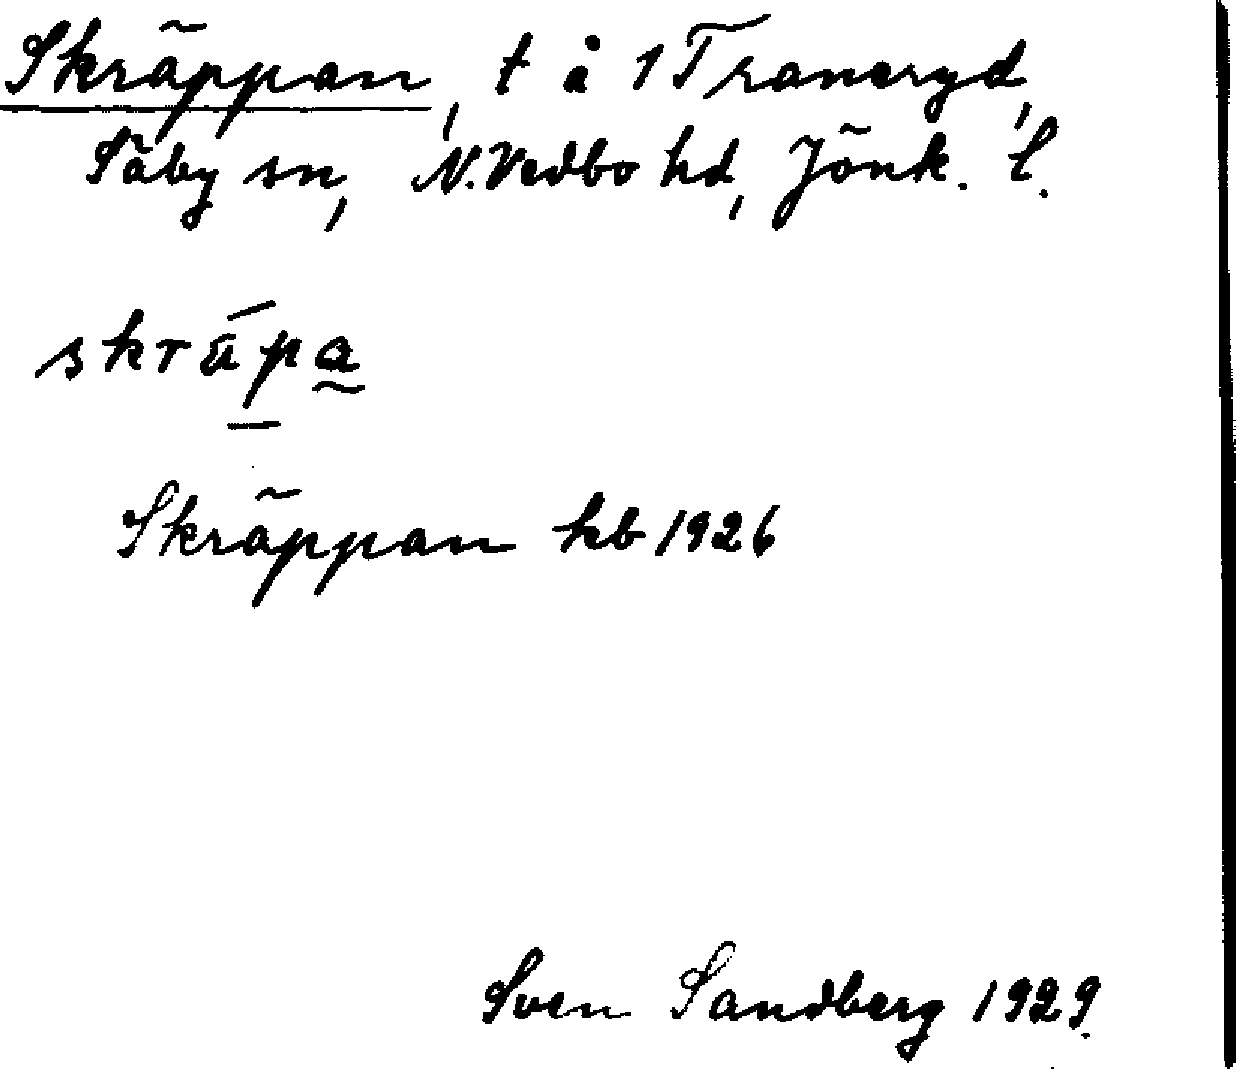 Skräppan, t å 1 Traneryd,
Säby sn, N. Vedbo hd, Jönk. l.
skräpa
Skräppan kb 1926
Sven Sandberg 1929.